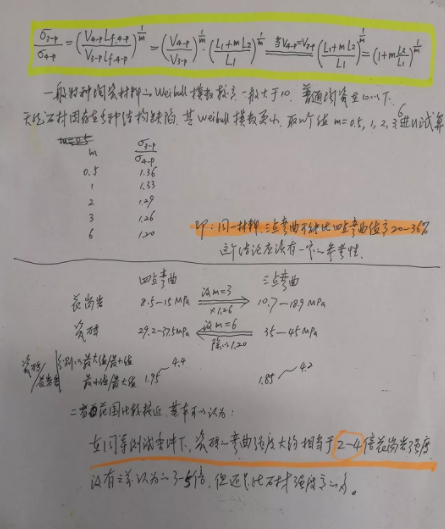 σ3-p/σ4-p = (V4-p Lf,4-p / V3-p Lf,3-p)^(1/m) = (V4-p/V3-p)^(1/m) · ((L1+mL2)/L1)^(1/m) 当V4-p=V3-p ((L1+mL2)/L1)^(1/m) = (1+m L2/L1)^(1/m)
一般特种陶瓷材料 Weibull 模数较高 一般大于10, 普通陶瓷在10以下.
天然石材因存在各种结构缺陷, 其Weibull模数更小. 取m值 m=0.5, 1, 2, 3, 6进行试算
m σ3-p/σ4-p
0.5 1.36
1 1.33
2 1.29
3 1.26
6 1.20
即: 同一材料, 三点弯曲 比四点弯曲值高20-36%
这个结论应该有一定参考性.
四点弯曲 三点弯曲
花岗岩 8.5-15 MPa 设m=3 ×1.26 10.7-18.9 MPa
瓷砖 29.2-37.5 MPa 设m=6 除以1.20 35-45 MPa
瓷砖/花岗岩 分别以最大值/最小值 4.4 4.2
最小值/最大值 1.95 1.85
二者范围比较接近, 基本可以认为:
在同等测试条件下, 瓷砖弯曲强度大约相当于2-4倍花岗岩强度
没有之前认为的3-5倍, 但还是比石材强度高